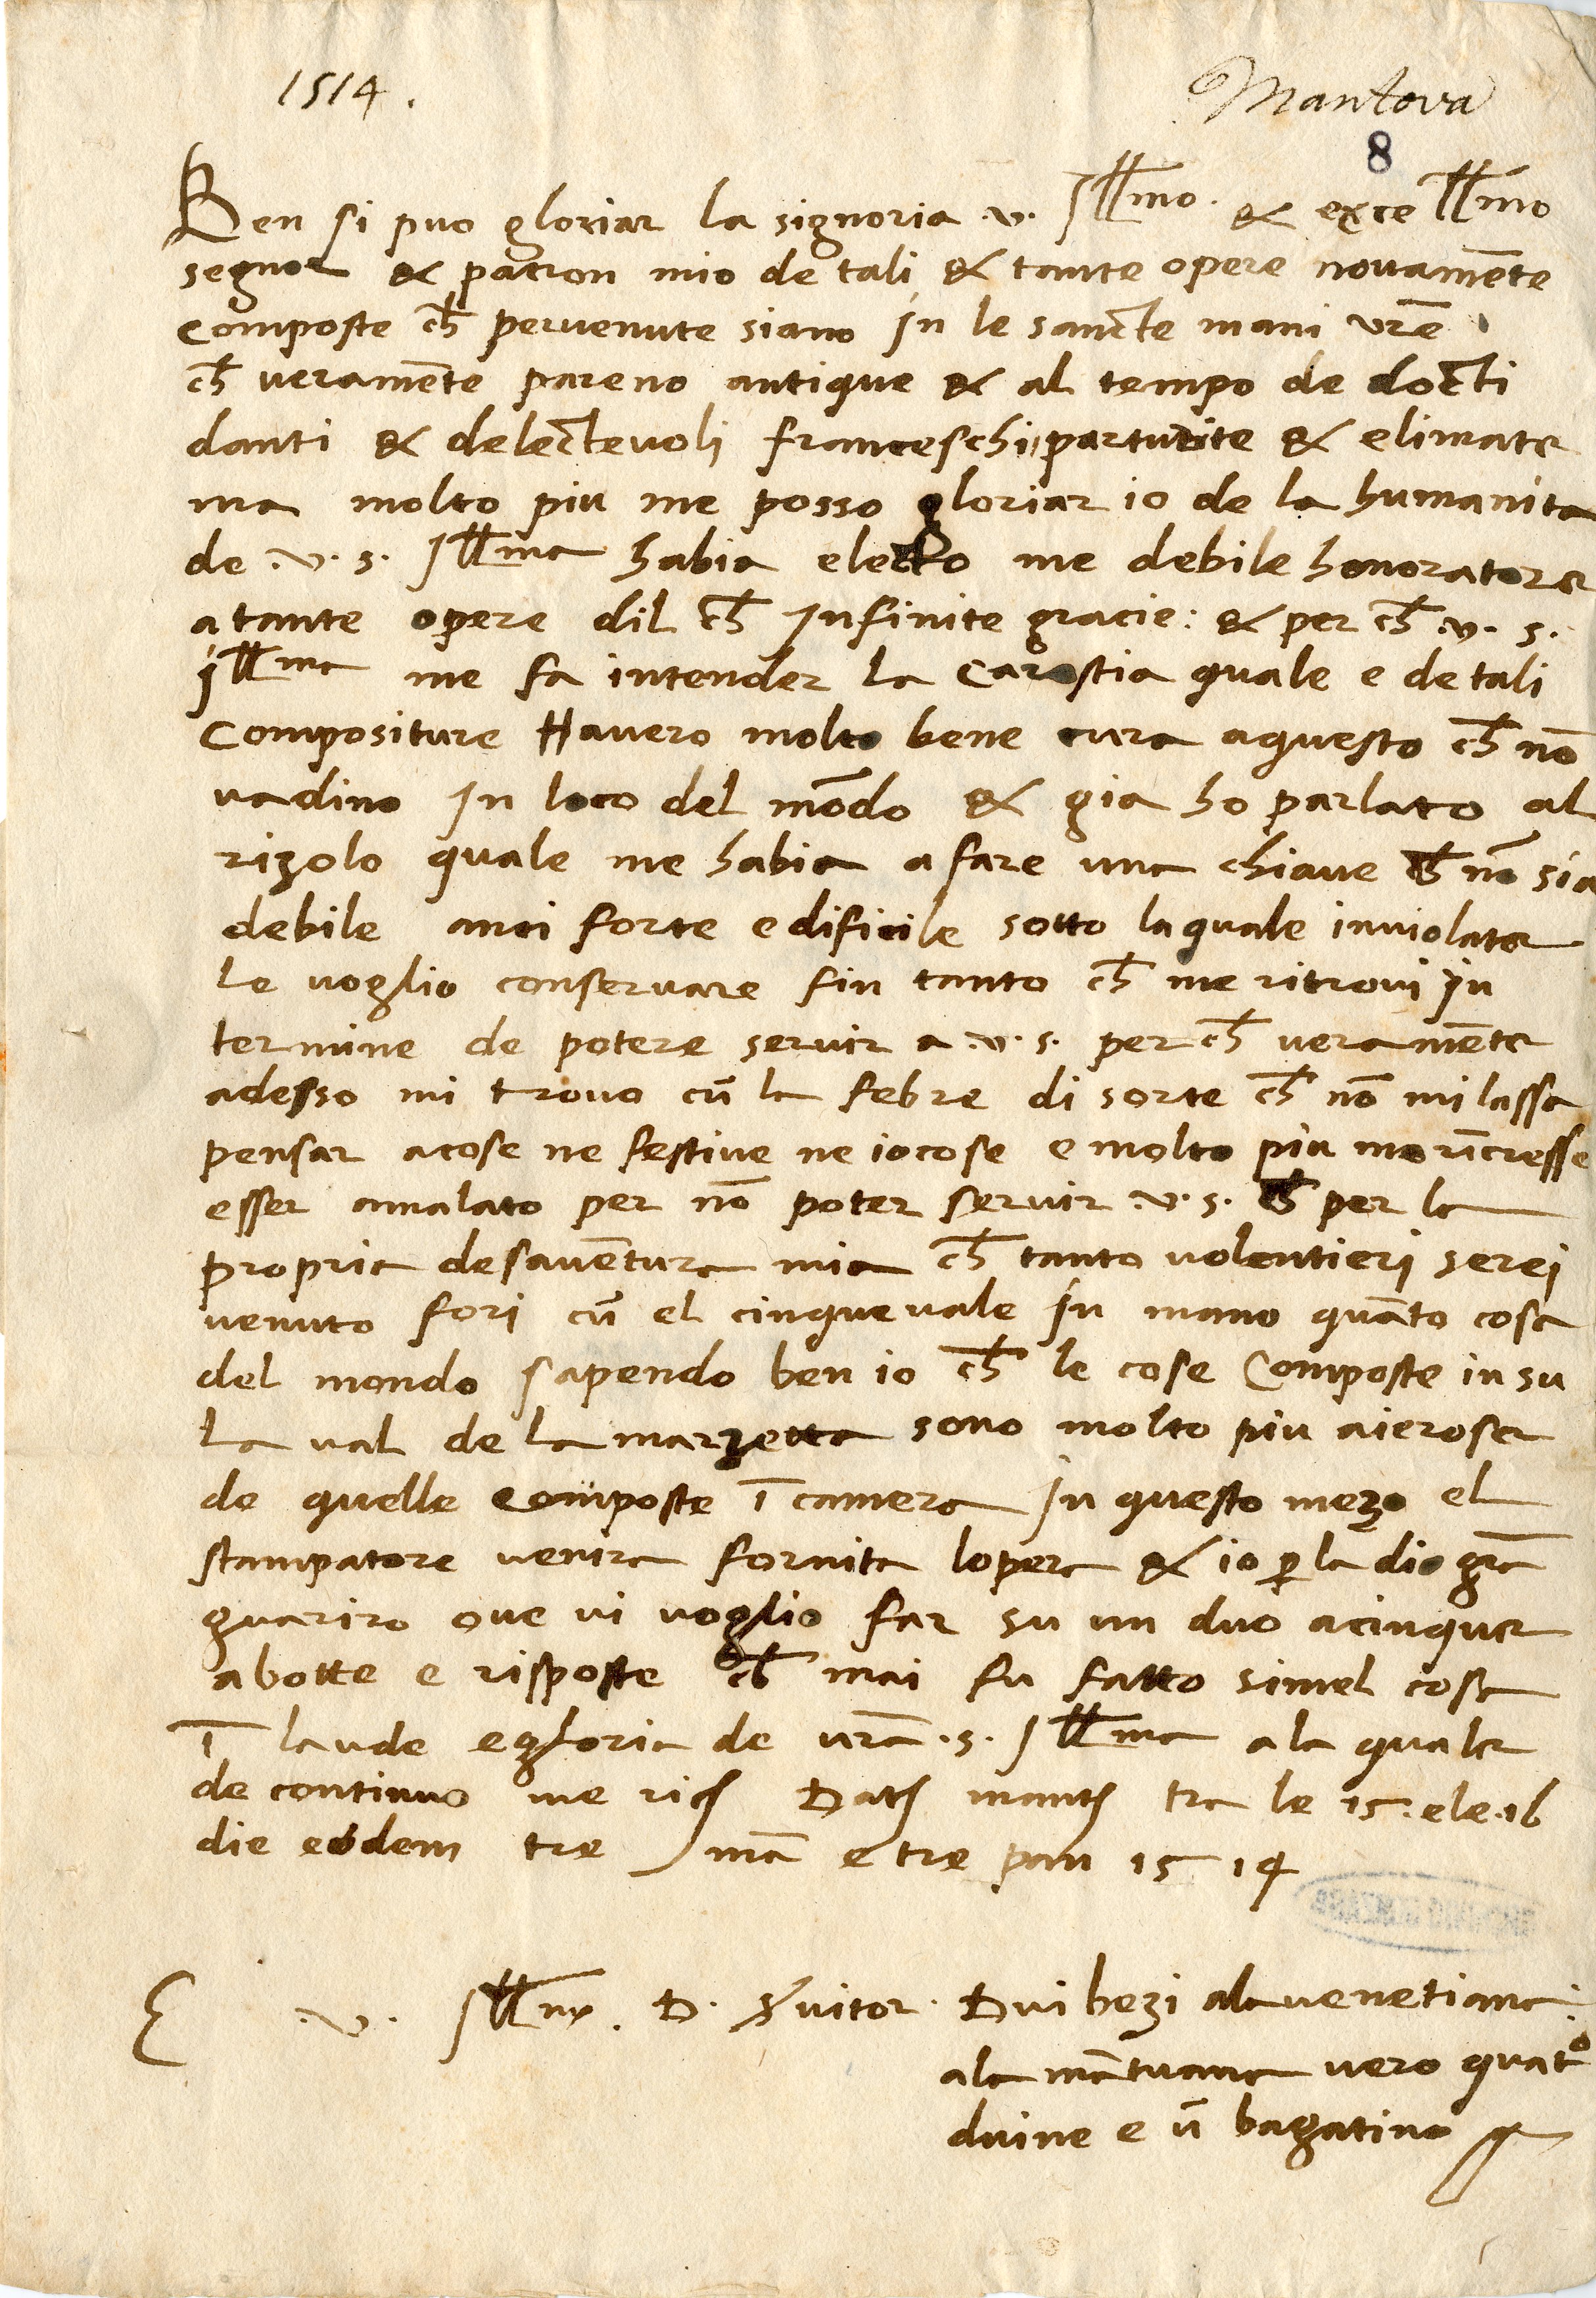 1514. Mantova
8
Ben si puo gloriar la signoria .v. Illmo. & excellmo
segnor & patron mio de tali & tante opere novamēte
composte ch̄ pervenute siano in le sancte mani vr̄e
ch̄ veramēte pareno antique & al tempo de docti
danti & delectevoli franceschi parturite & elimate
ma molto piu me posso gloriar io de la humanita
de .v. s. Illma habia electo me debile honoratore
a tante opere dil ch̄ Infinite gracie: & per ch̄ .v. s.
illma me fa intender la carestia quale e de tali
Compositure Havero molto bene cura aquesto ch̄ nō
vadino In loco del mōdo & gia ho parlato al
rizolo quale me habia a fare una chiave ch̄ nō sia
debile anci forte e dificile sotto laquale inviolate
le voglio conservare fin tanto ch̄ me ritrovi in
termine de potere servir a .v. s. per ch̄ veramēte
adesso mi trovo cū la febre di sorte ch̄ nō mi lassa
pensar a cose ne festive ne iocose e molto piu me rīcresse
esser amalato per nō poter servir .v. s. ch̄ per la
propria desavētura mia ch̄ tanto volentieri serei
venuto fori cū el cinquevale in mano quāto cosa
del mondo sapendo ben io ch̄ le cose Composte in su
la val de la marzetta sono molto piu aierose
de quelle composte ī camera In questo mezo el
stampatore venira fornita lopera & io p̱ la dio grā
guariro ove vi voglio far su un duo acinque
abotte e risposte ch̄ mai fu fatto simel cosa
ī laude e gloria de vrā .s. Illma a la quale
de continuo me ric̄ Dat̄ mant̄ tra le 15. e le .16
die eodem tre mā e tre pan 1514
E .v. Illm̄. D. S̄vitor. Dui bezi ala venetiana:
ala mātuana vero quatº
duine e ū bagatino